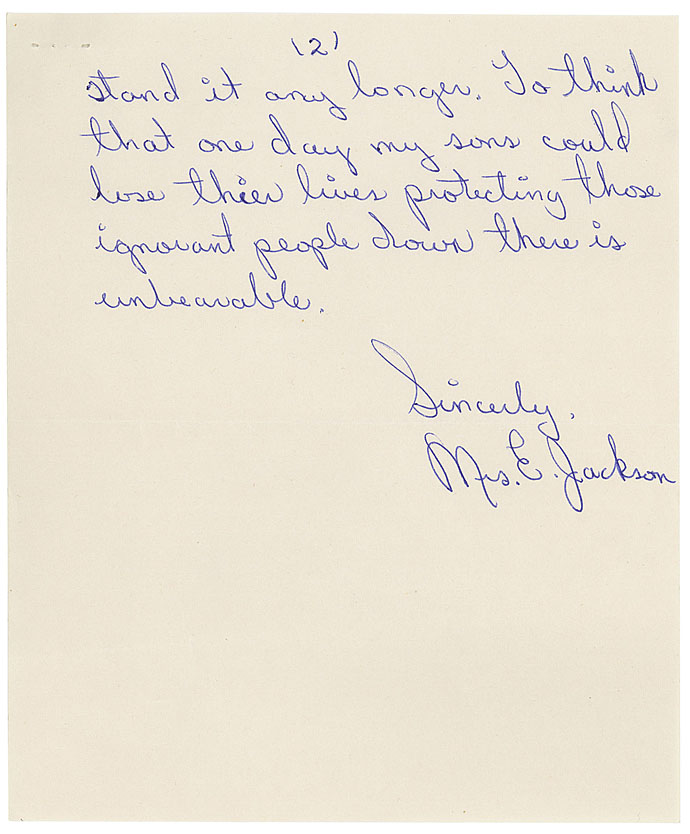 (2)
stand it any longer. To think
that one day my sons could
lose thier lives protecting those
ignorant people down there is
unbearable.
Sincerly,
Mrs. E. Jackson